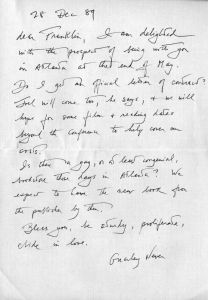 28 Dec 89
dear Franklin, I am delighted
with the prospect of being with you
in Atlanta at the end of May.
Do I get an official letter of contract?
Joel will come, too, he says, & we will
hope for some film & reading dates
beyond the conference to help cover our
costs.
Is there a gay, or at least congenial,
bookstore these days in Atlanta? We
expect to have the new book from
the publisher by then.
Bless you, be sturdy, proliferate,
abide in love.